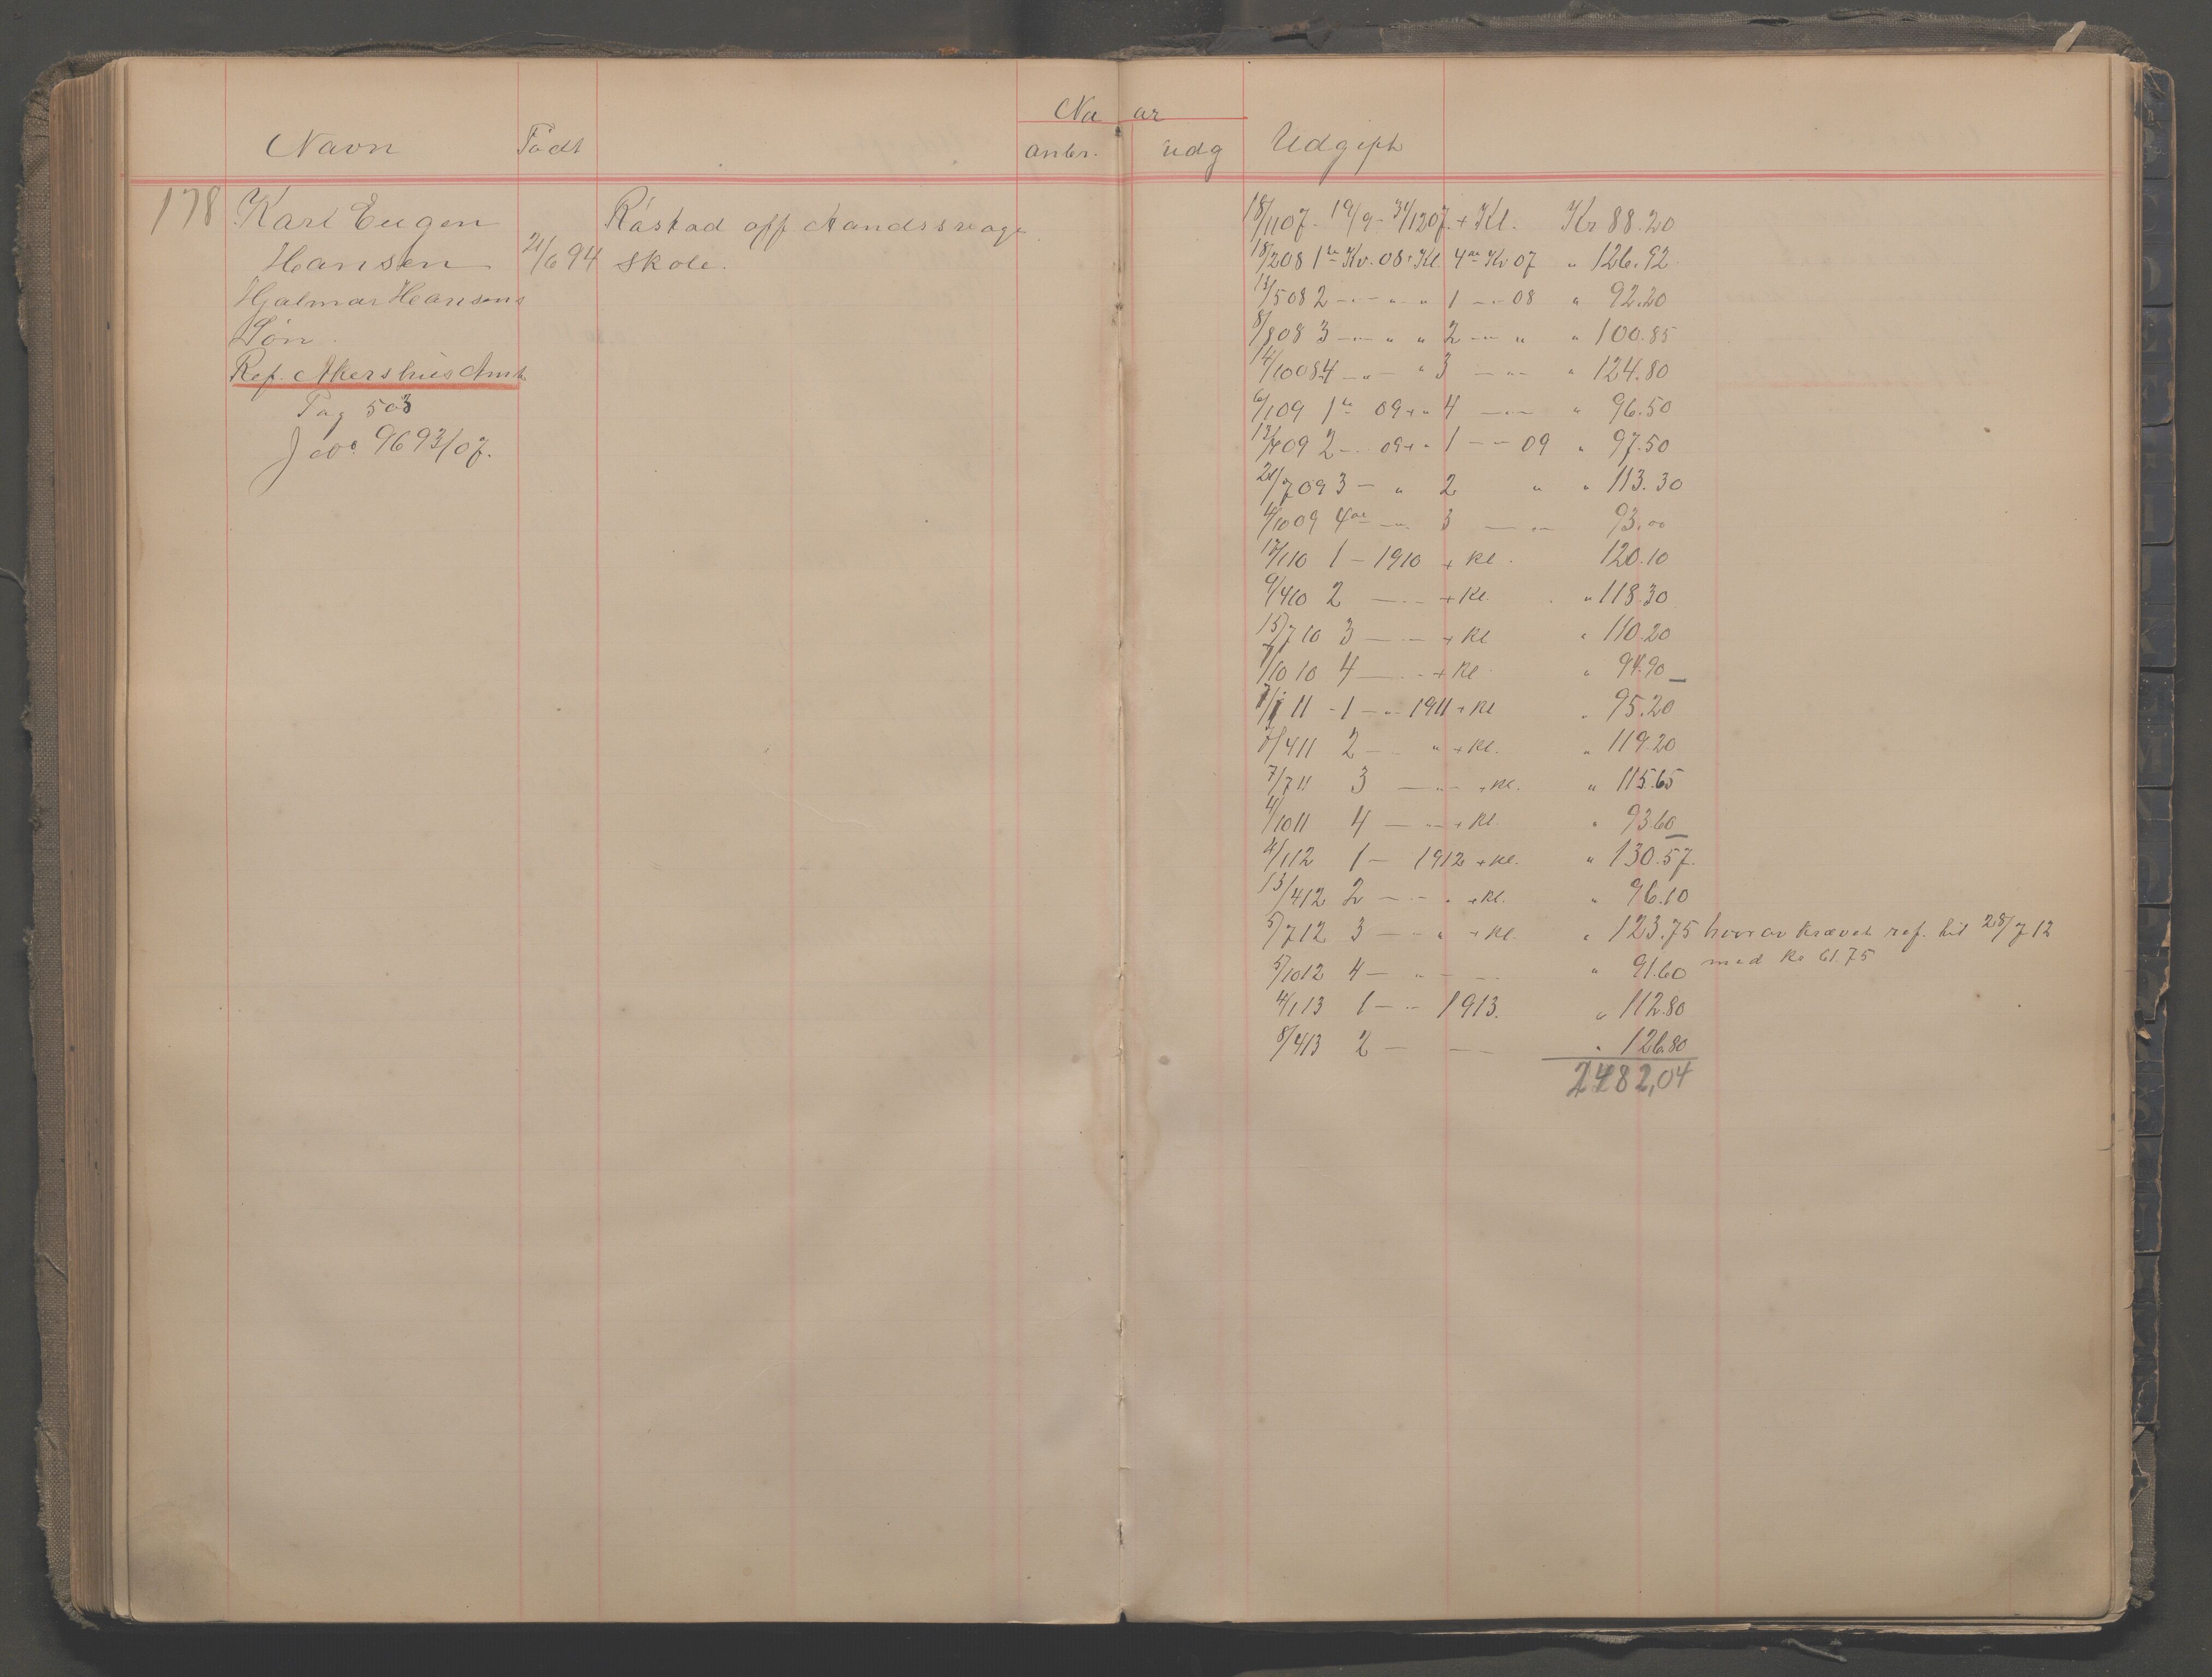 Navn
Födt
Na ar
anbr.
udg
Udgift
178
Karl Eugen
Hansen
21/6 94
Hjalmar Hansens
Søn.
Ref. Akershus Amt
Pag 503
J No. 9693/07.
Råstad off Aandssvage
skole.
18/11 07. 19/9 - 31/12 07. + Kl. Kr 88.20
18/2 08 1ste Kv. 08 + Kl. 4de Kv 07 " 126.92
13/5 08 2 - " - " " 1 - " - 08 " 92.20
8/8 08 3 - " - " " 2 - " - " " 100.85
14/10 08 4 - " - " 3 - " - " 124.80
6/1 09 1ste 09 + " 4 - " - " 96.50
13/4 09 2 - " 09 + " 1 - " - 09 " 97.50
21/7 09 3 - " 2 " " 113.30
4/10 09 4de - " - 3 - " - 93.00
12/1 10 1 - 1910 + Kl. 120.10
9/4 10 2 - " - + Kl. " 118.30
15/7 10 3 - " - + Kl " 110.20
7/10 10 4 - " - + Kl " 94.90
7/1 11 - 1 - " 1911 + Kl " 95.20
7/4 11 2 - " + Kl. " 119.20
7/7 11 3 - " - + Kl. " 115.65
4/10 11 4 - " - + Kl. " 93.60
4/1 12 1 - 1912 + Kl. " 130.57.
13/4 12 2 - " - " + Kl. " 96.10
5/7 12 3 - " - " + Kl. " 123.75 hvorav krævet ref. til 28/7 12
med Kr 61.75
5/10 12 4 - " - " - " 91.60
4/1 13 1 - " - 1913. " 112.80
8/4 13 2 - " - " 126.80
2482,04